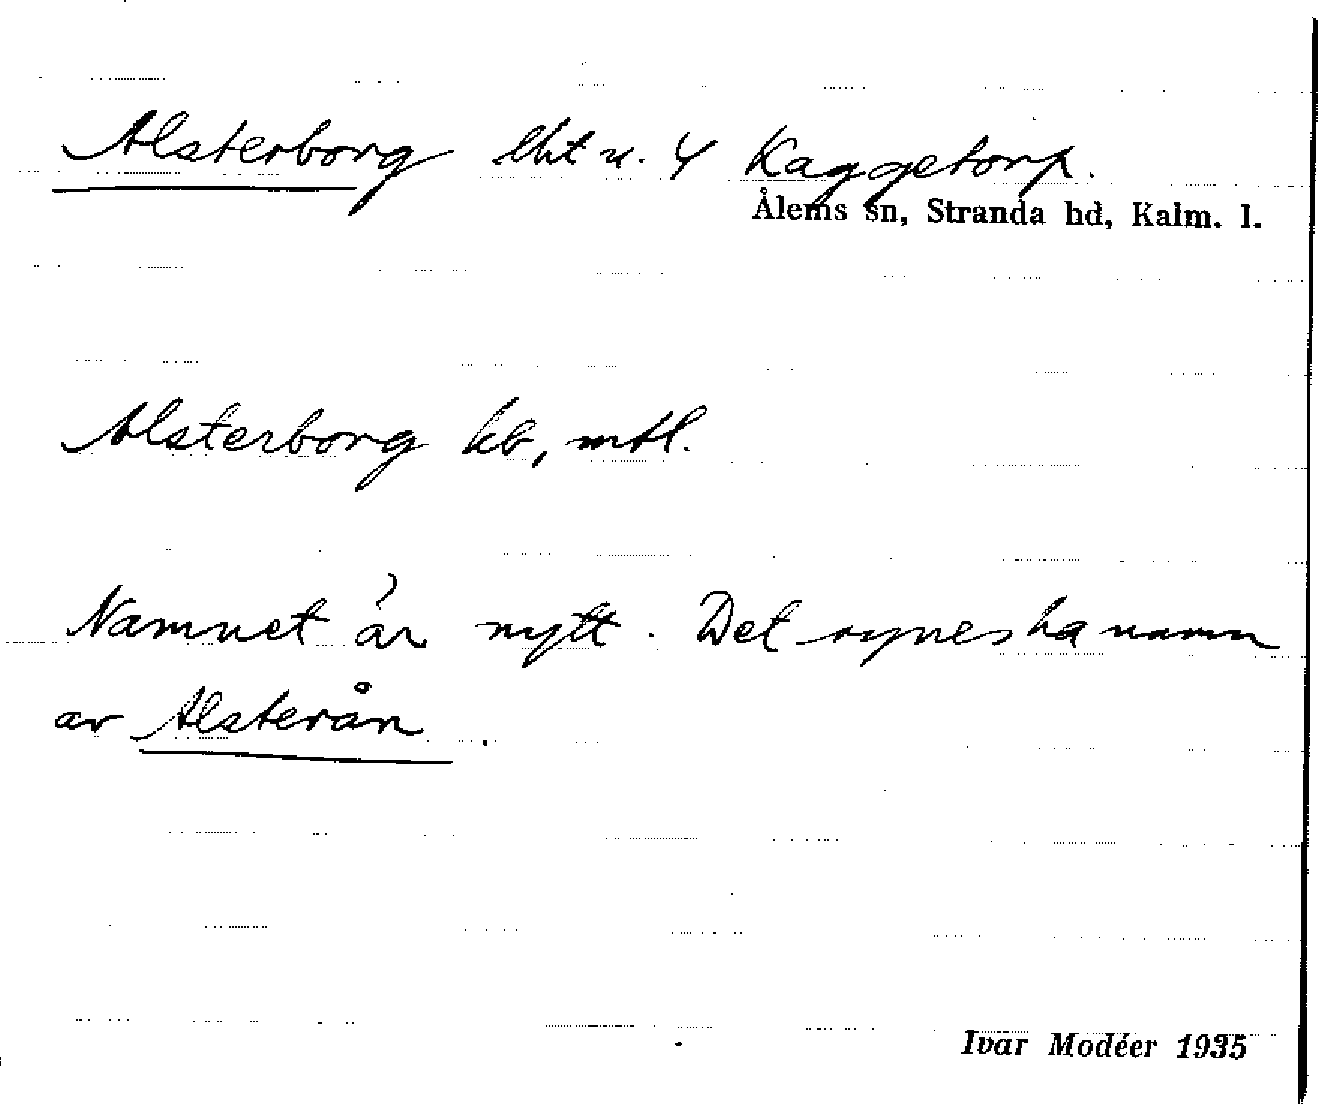 Alsterborg lht u. 4 Kaggetorp.
Ålems sn, Stranda hd, Kalm. l.
Alsterborg kb, mtl.
Namnet är nytt. Det synes ha namn
av Alsterån.
Ivar Modéer 1935